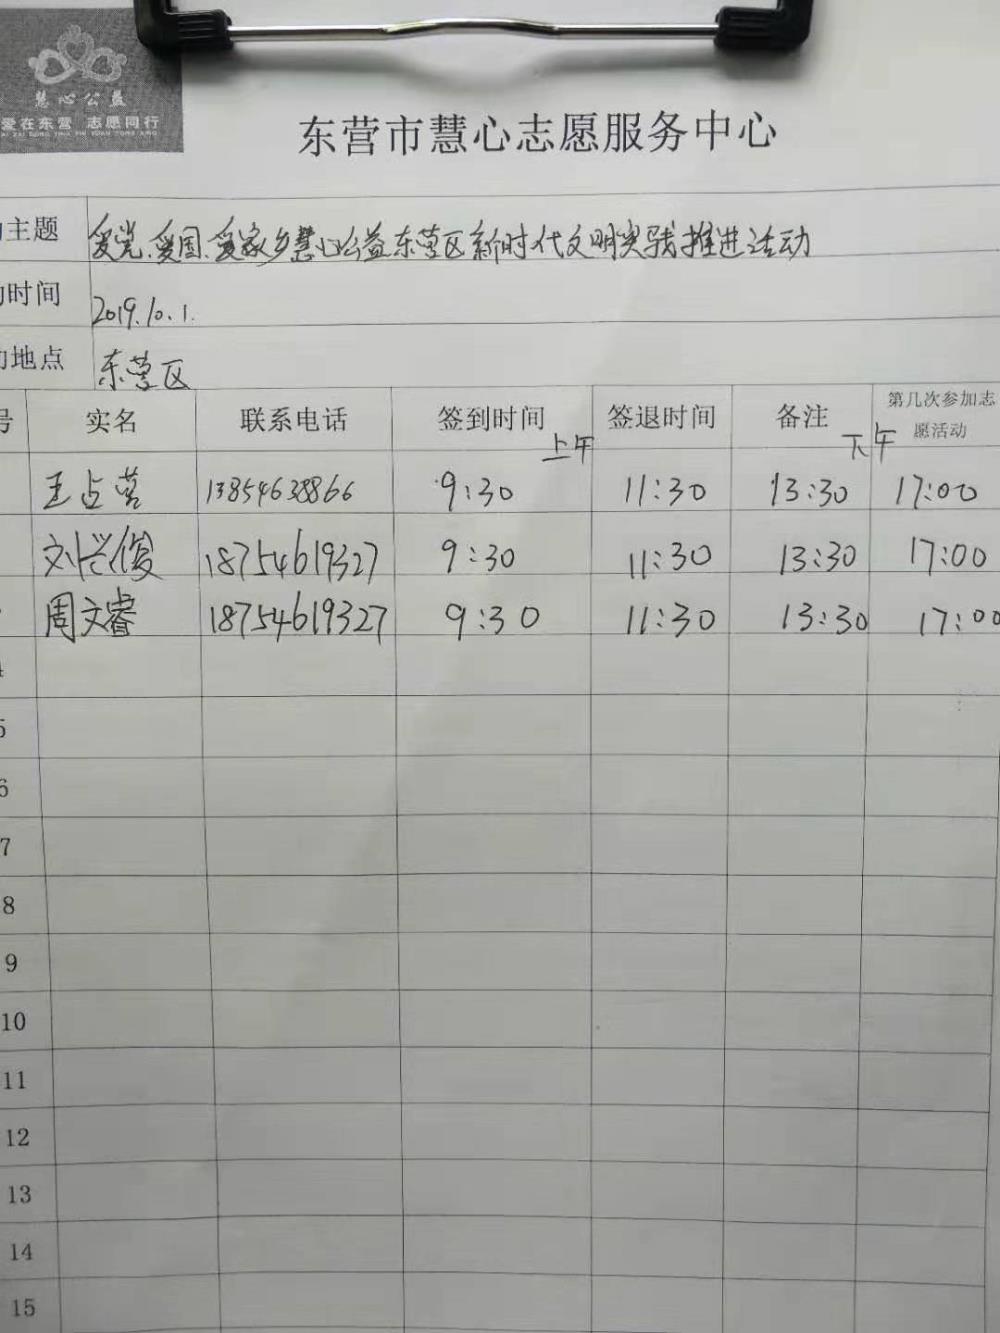 慧心公益
爱在东营 志愿同行
东营市慧心志愿服务中心
主题 爱党、爱国、爱家乡慧心公益东营区新时代文明实践推进活动
时间 2019.10.1.
地点 东营区
号 实名 联系电话 签到时间 签退时间 备注 第几次参加志愿活动
上午 下午
王占营 13854638866 9:30 11:30 13:30 17:00
刘兴俊 18754619327 9:30 11:30 13:30 17:00
周文睿 18754619327 9:30 11:30 13:30 17:00
4
5
6
7
8
9
10
11
12
13
14
15